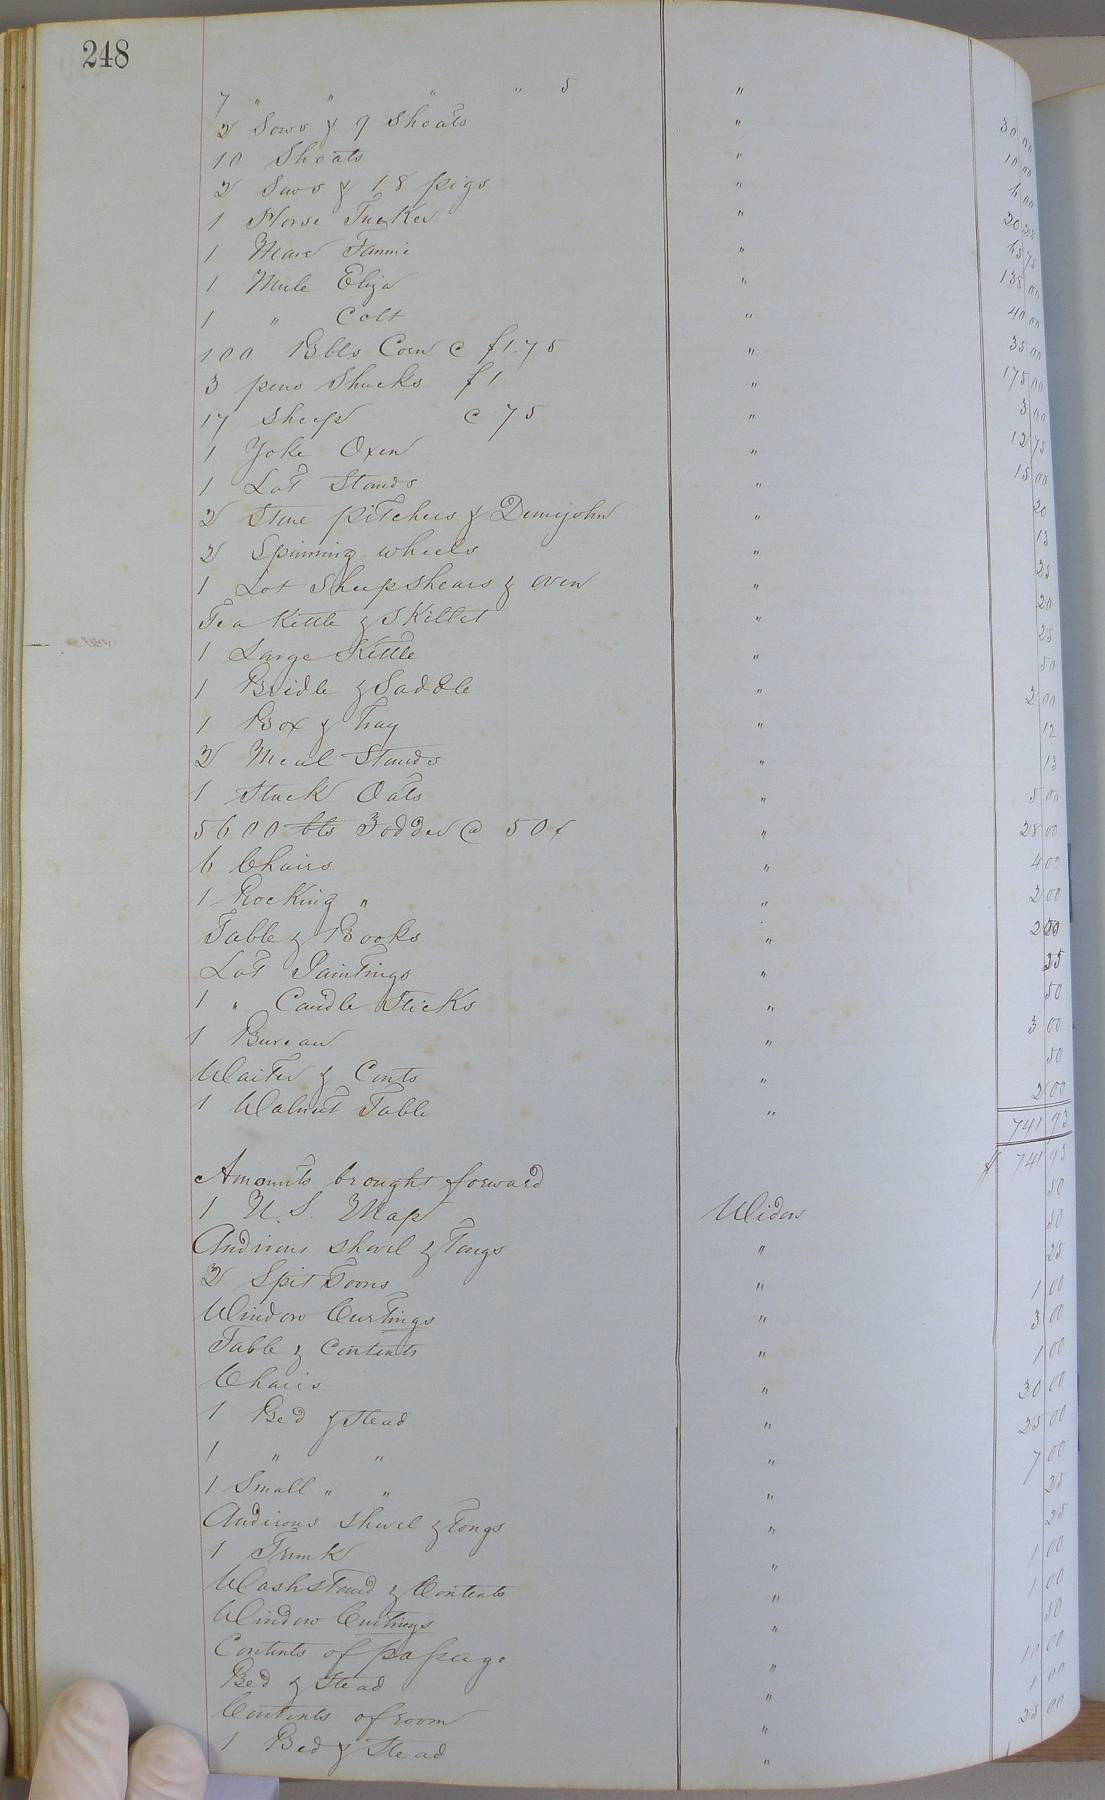 248
7 " " " " 5 "
2 Sows & 9 Shoats " 30 00
10 Shoats " 10 00
2 Sows & 18 pigs " 6 00
1 Horse Tucker " 20 25
1 Mare Fannie " 65 75
1 Mule Eliza " 138 00
1 " Colt " 40 00
100 Bbls Corn @ $1.75 " 35 00
3 pens Shucks $1 " 175 00
17 Sheep @ 75 " 3 00
1 Yoke Oxen " 12 75
1 Lot Stands " 15 00
2 Stone pitchers & Demijohn " 20
2 Spinning wheels " 13
1 Lot Sheep shears & oven " 25
Tea Kettle & Skillet " 20
1 Large Kettle " 25
1 Bridle & Saddle " 50
1 Box & Tray " 2 00
2 Meal Stands " 12
1 Stack Oats " 13
5600 bls Fodder @ 50¢ " 5 00
6 Chairs " 28 00
1 Rocking " " 4 00
Table & Books " 2 00
Lot Paintings " 2 50
1 " Candle Sticks " 25
1 Bureau " 50
Waiter & Conts " 3 00
1 Walnut Table " 50
2 00
741 93
Amounts brought forward $ 741 93
1 U.S. Map Widow 50
Andirons Shovel & Tongs " 50
2 Spit Toons " 25
Window Curtings " 1 00
Table & Contents " 3 00
Chairs " 1 00
1 Bed & Stead " 30 00
1 " " " 25 00
1 Small " " " 7 00
Andirons Shovel & Tongs " 25
1 Trunk " 25
Washstand & Contents " 1 00
Window Curtings " 1 00
Contents of passage " 50
Bed & Stead " 10 00
Contents of room " 1 00
1 Bed & Stead " 25 00